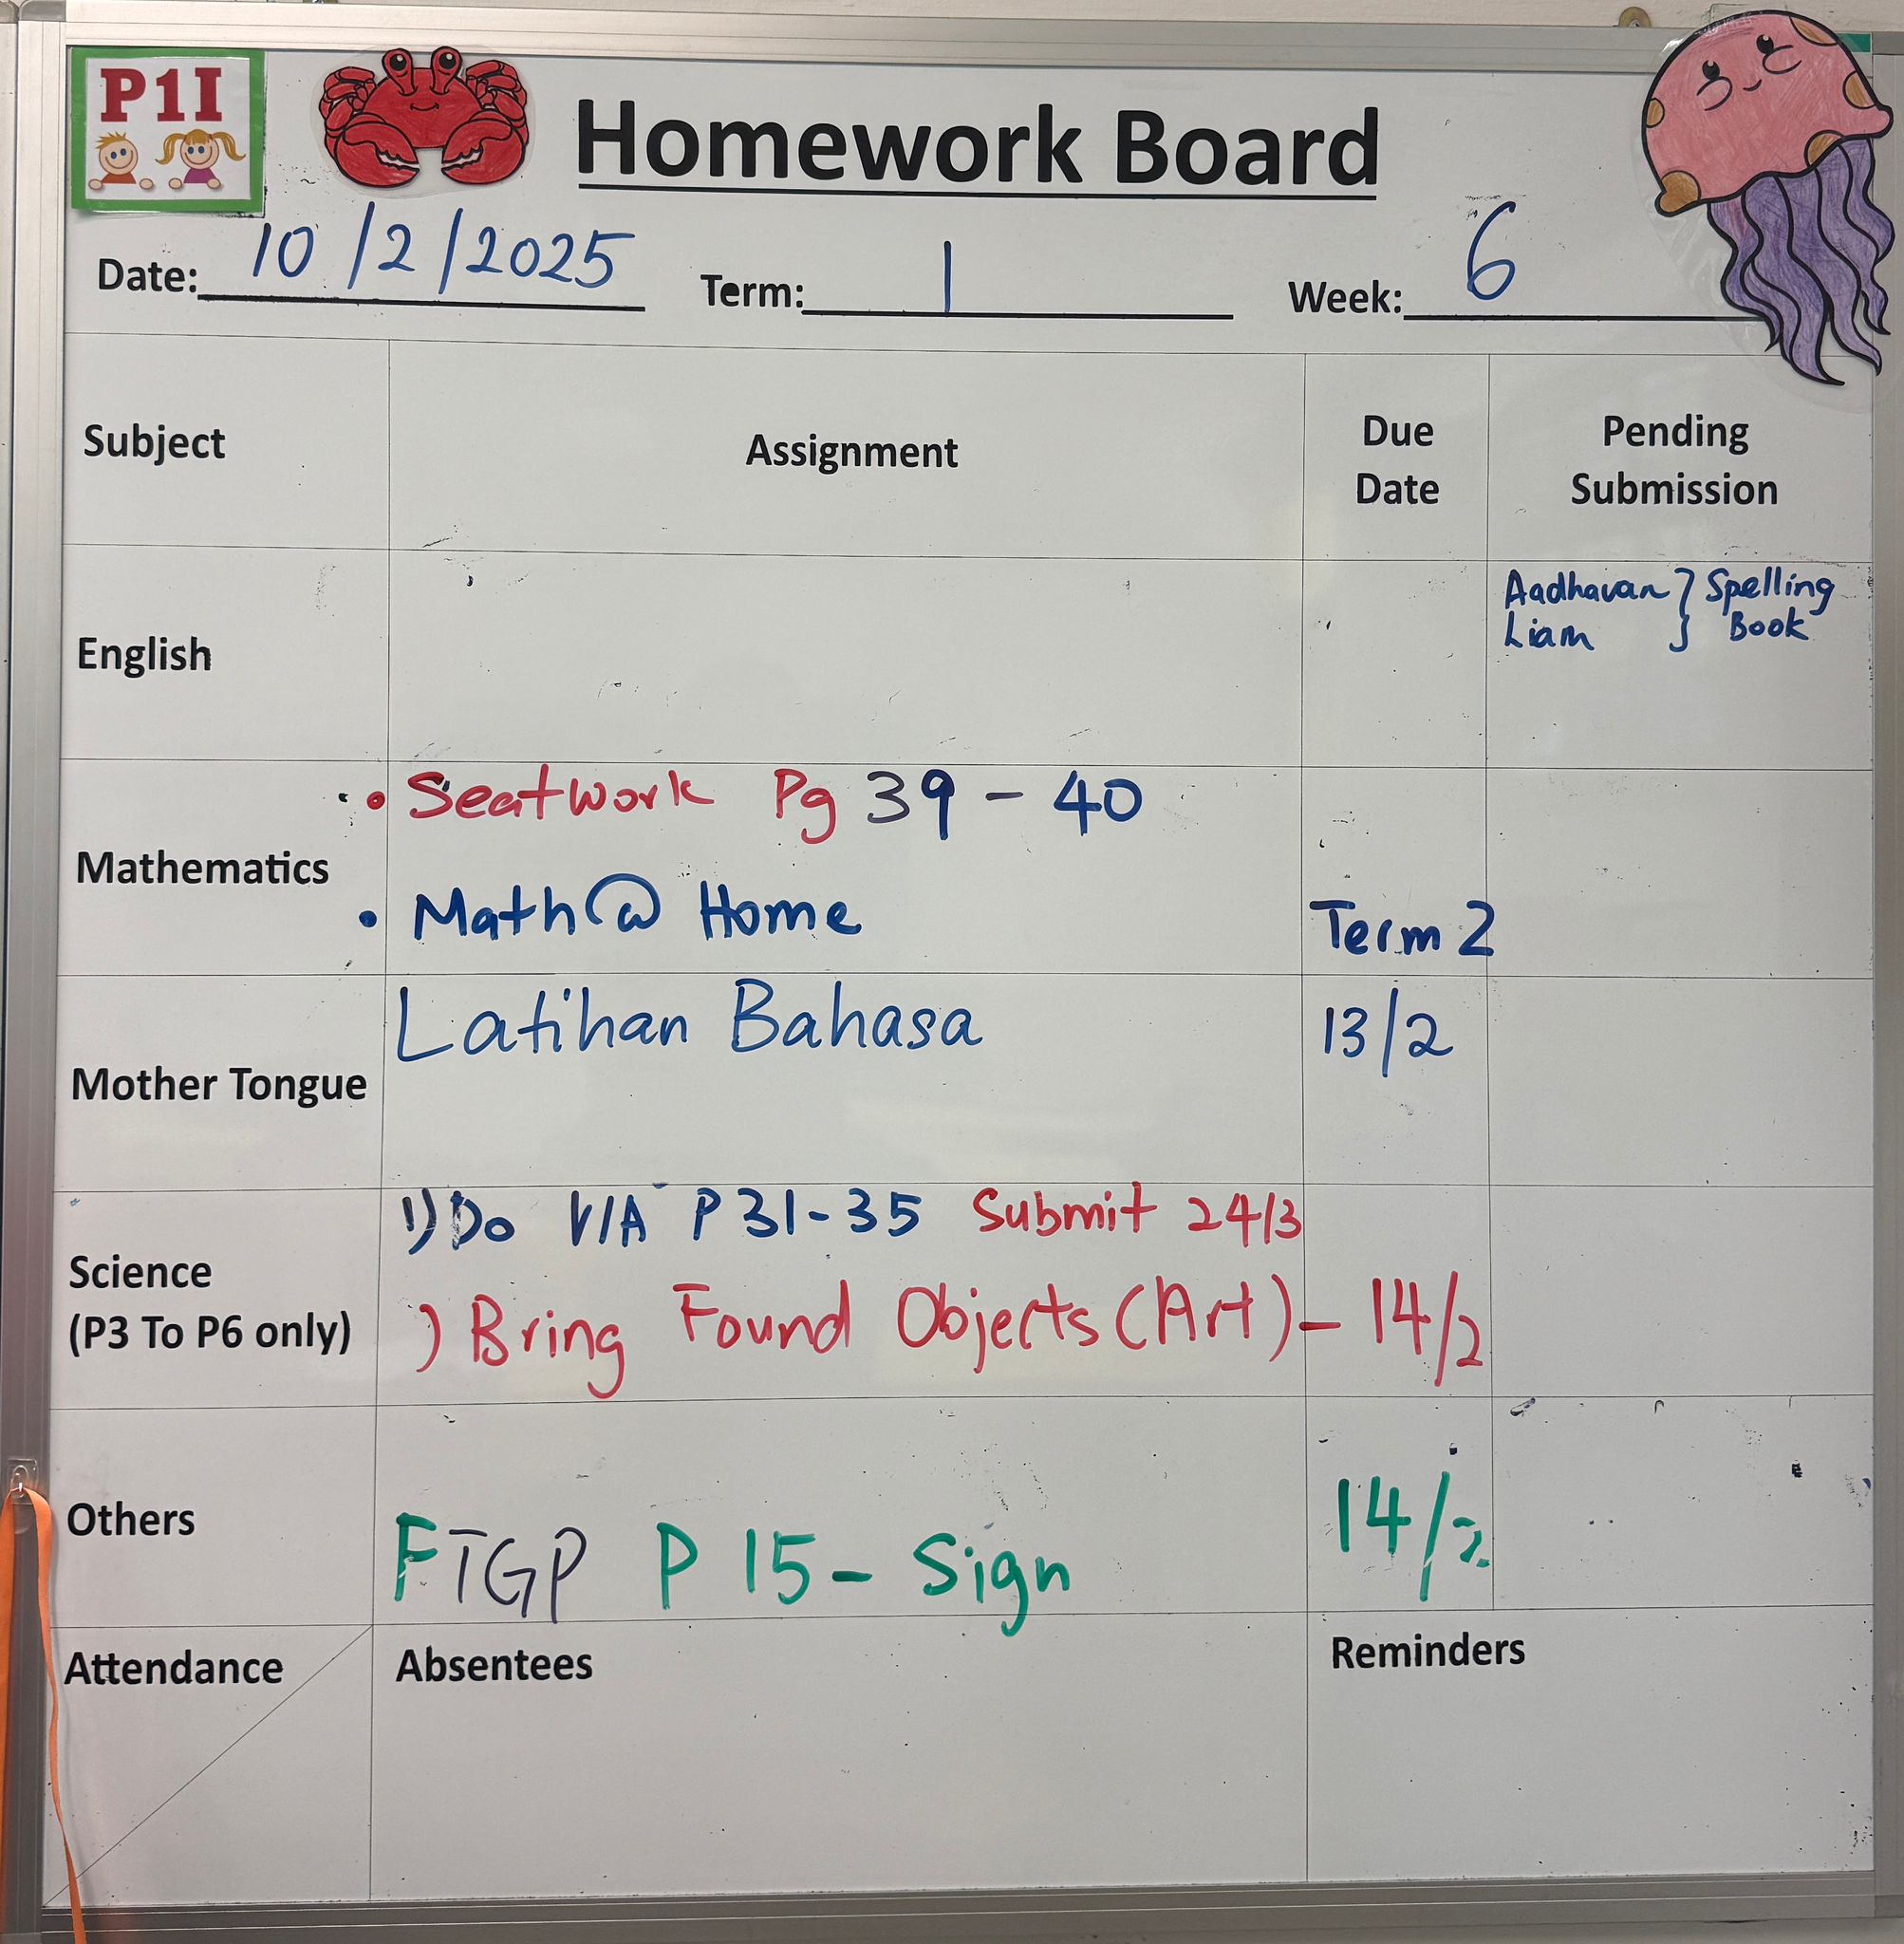 P1I
Homework Board
Date: 10/2/2025 Term: 1 Week: 6
Subject Assignment Due Date Pending Submission
English
Aadhavan } Spelling
Liam } Book
Mathematics
• Seatwork Pg 39 - 40
• Math@ Home Term 2
Mother Tongue
Latihan Bahasa 13/2
Science
(P3 To P6 only)
1) Do V/A P 31-35 Submit 24/3
) Bring Found Objects (Art) - 14/2
Others
FTGP P 15 - Sign 14/2
Attendance Absentees Reminders